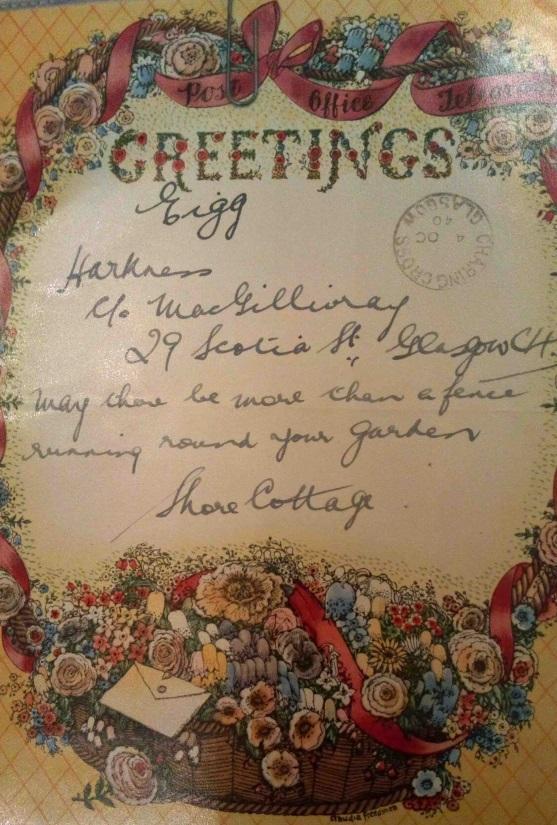 Post Office Telegram
GREETINGS
Eigg
CHARING CROSS GLASGOW
4 OC
40
Harkness
c/o MacGillivray
29 Scotia St. Glasgow CH
May there be more than a fence
running round your garden
Shore Cottage
Claudia Freedman